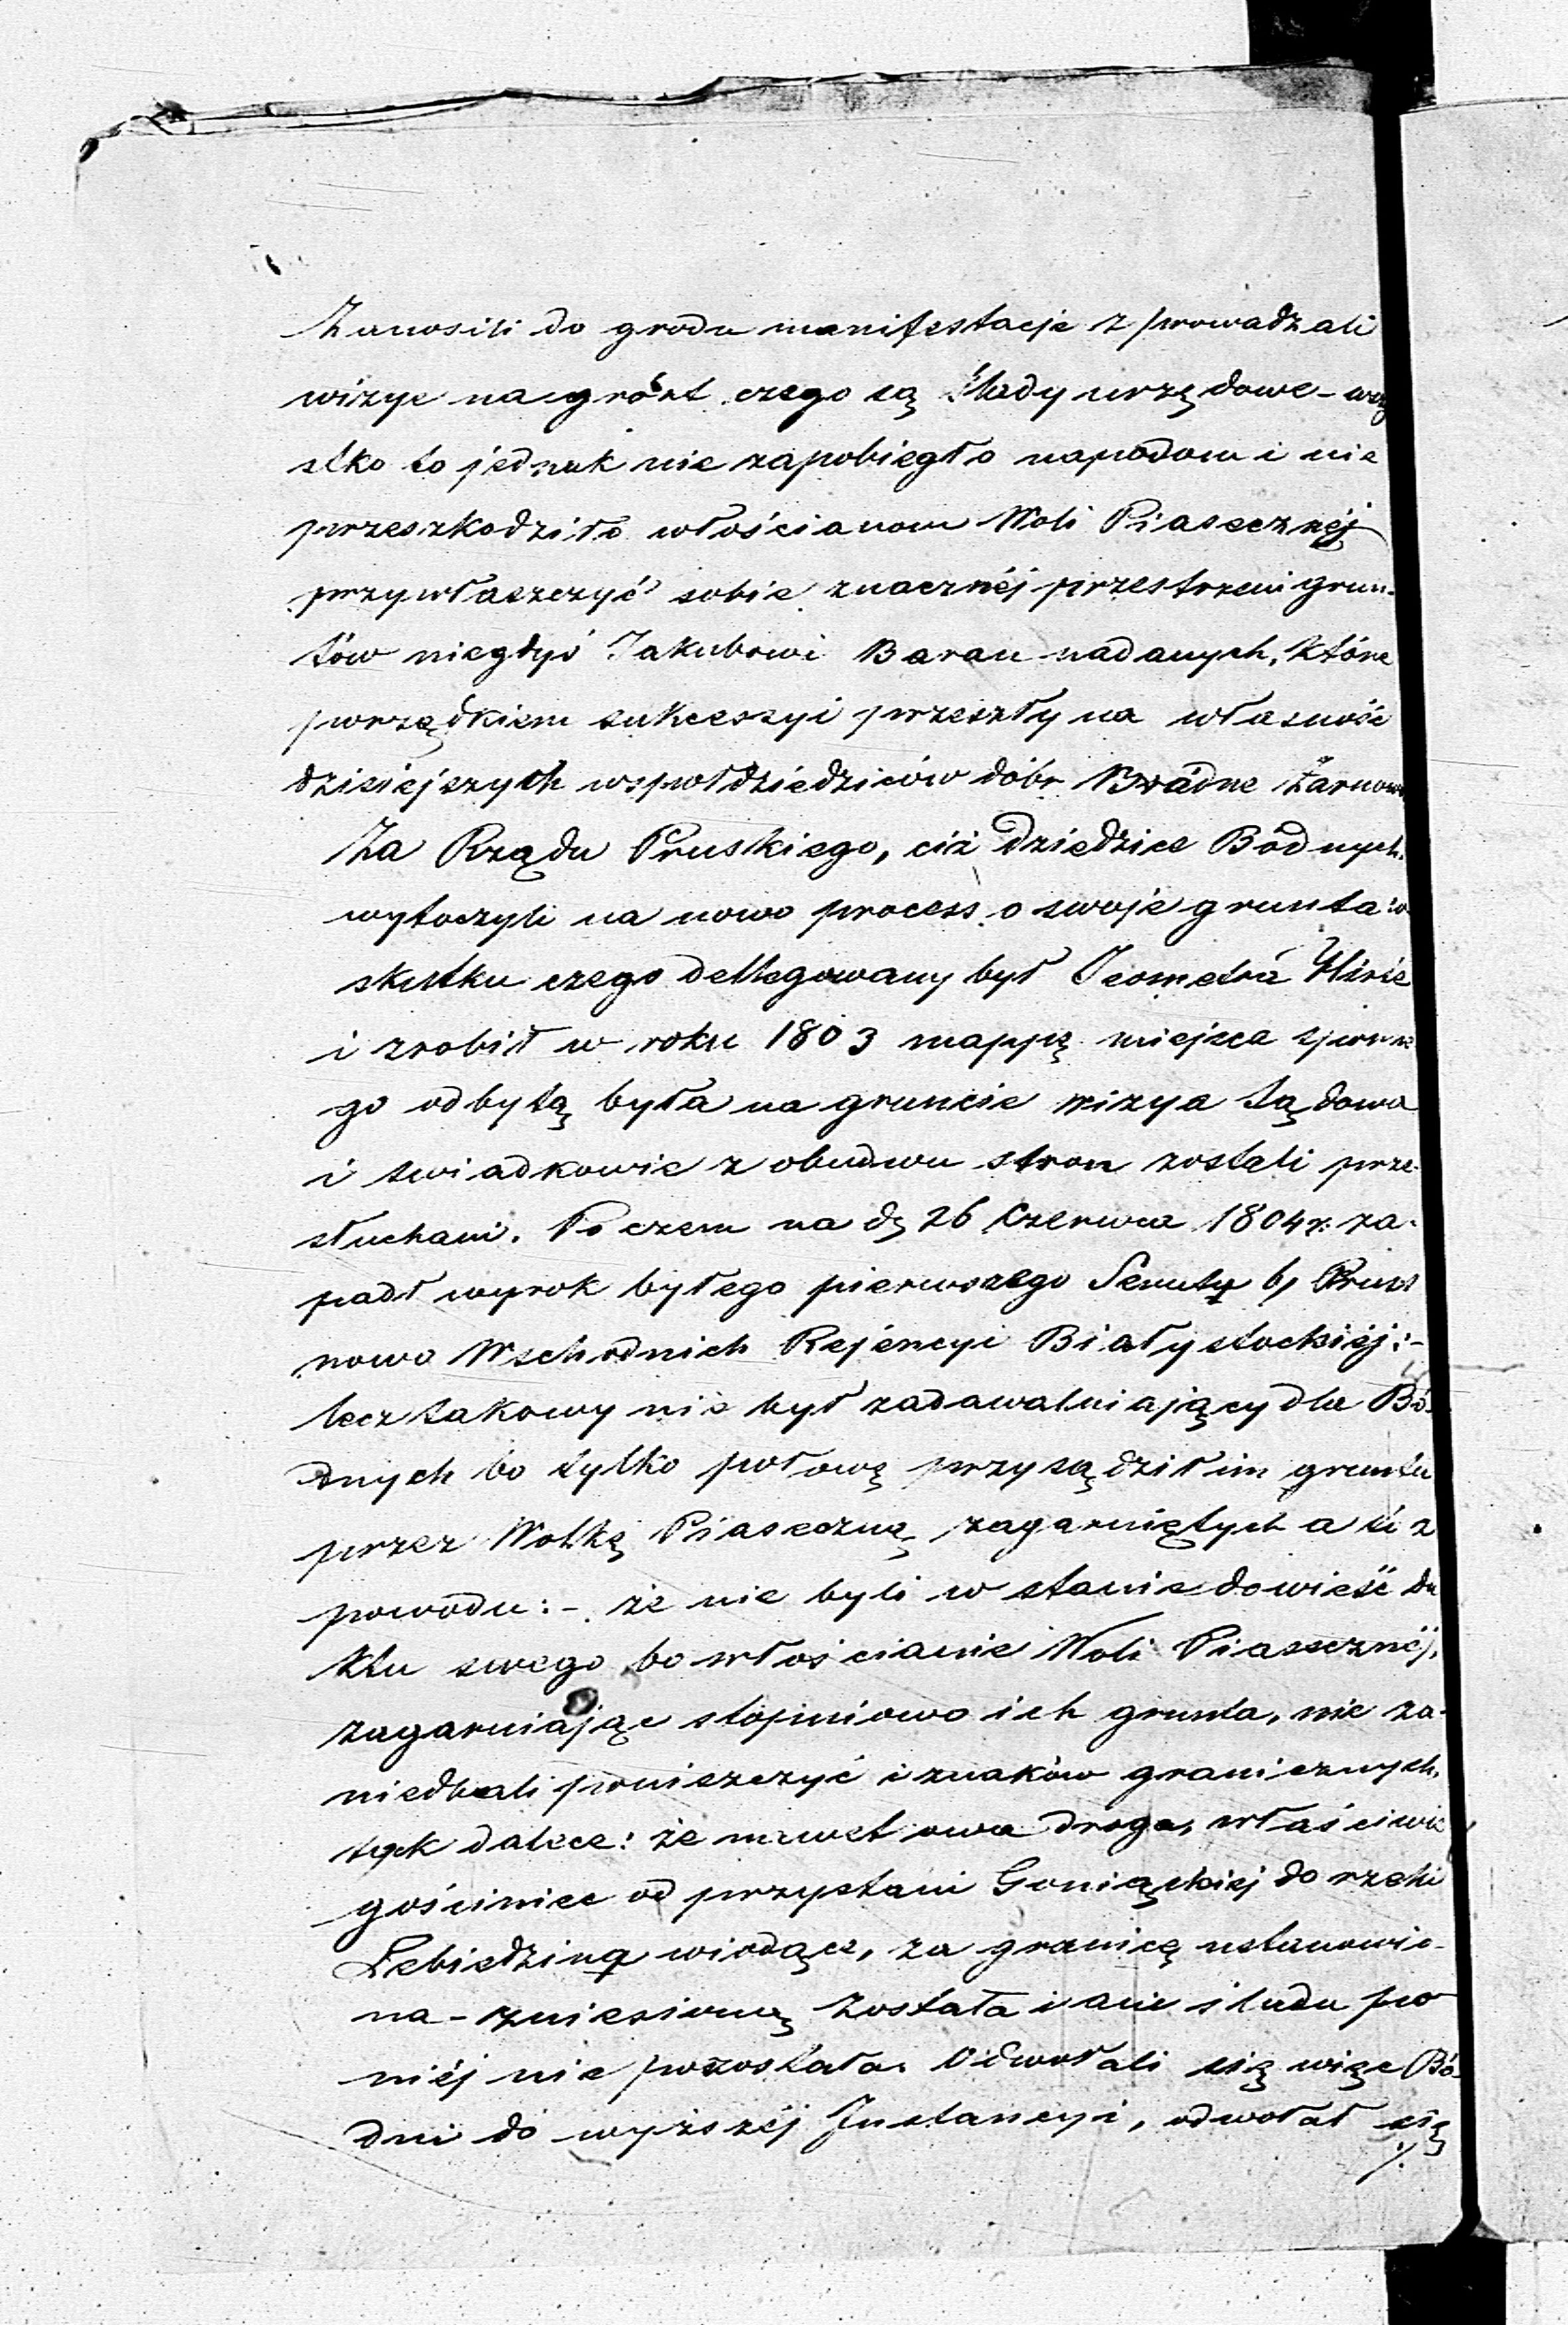 Zanosili do grodu manifestacje z prowadzali
wizye na grónt czego są ślady urzędowe - wszy
stko to jednak nie zapobiegło napadom i nie
przeszkodziło włościanom Woli Piasecznéj
przywłaszczyć sobie znacznéj przestrzeni grun-
tów niegdyś Jakubowi Baran nadanych, które
porządkiem sukcessyi przeszły na własność
dzisiejszych wspołdziedziców dóbr Żarnowo
Za Rządu Pruskiego, ciż dziedzice Bódnych
wytoczyli na nowo process o swoje grunta w
skutku czego dellegowany był Jeometra
i zrobił w roku 1803 mappę miejsca sporne
go odbytą była na gruncie wizya Sądowa
i swiadkowie z obudwu stron zostali prze-
słuchani. Po czem na dn 26 Czerwca 1804 r: za-
padł wyrok byłego pierwszego Senatu b. Prus
nowo Wschodnich Rejencyi Białystockiéj:-
lecz takowy nie był zadawalniający dla Bó-
dnych bo tylko połowę przysądził im gruntu
przez Wolkę Piaseczną zagarniętych a to z
powodu:- że nie byli w stanie dowieść du
ktu swego bo włościanie Woli Piasecznéj,
zagarniając stopniowo ich grunta, nie za-
niedbali poniszczyć i znaków granicznych,
tak dalece: że nawet owa droga, właściwie
gościniec od przystani Goniąckiej do rzeki
Lebiedzinq wiodące, za granicę ustanowio-
na - zniesioną została i ani sladu po
niéj nie pozostało. Odwołali się więc Bó-
dni do wyższéj Instancyi, odwołał się
./.